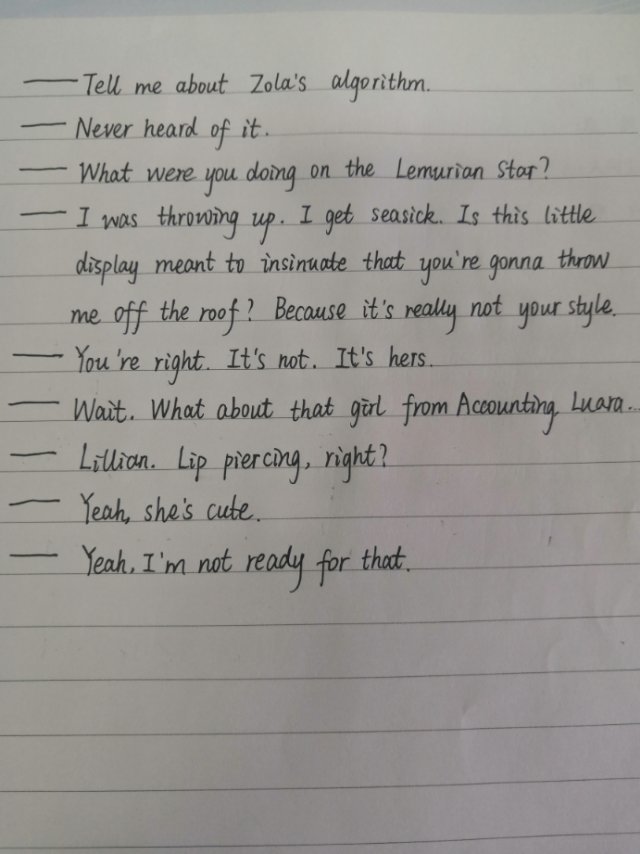 — Tell me about Zola's algorithm.
— Never heard of it.
— What were you doing on the Lemurian Star?
— I was throwing up. I get seasick. Is this little
display meant to insinuate that you're gonna throw
me off the roof? Because it's really not your style.
— You're right. It's not. It's hers.
— Wait. What about that girl from Accounting, Luara...
— Lillian. Lip piercing, right?
— Yeah, she's cute.
— Yeah, I'm not ready for that.